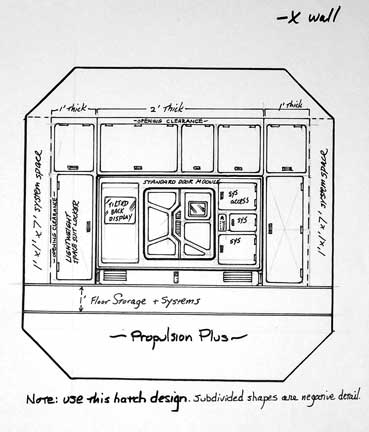 -X wall
1' thick
2' Thick
1' thick
OPENING CLEARANCE
1'x1'x7' system space
OPENING CLEARANCE
LIGHTWEIGHT
SPACE SUIT LOCKER
STANDARD DOOR MODULE
TILTED
BACK
DISPLAY
SYS
ACCESS
SYS
SYS
1'x1'x7' system space
1' Floor Storage + Systems
~ Propulsion Plus ~
Note: use this hatch design. Subdivided shapes are negative detail.